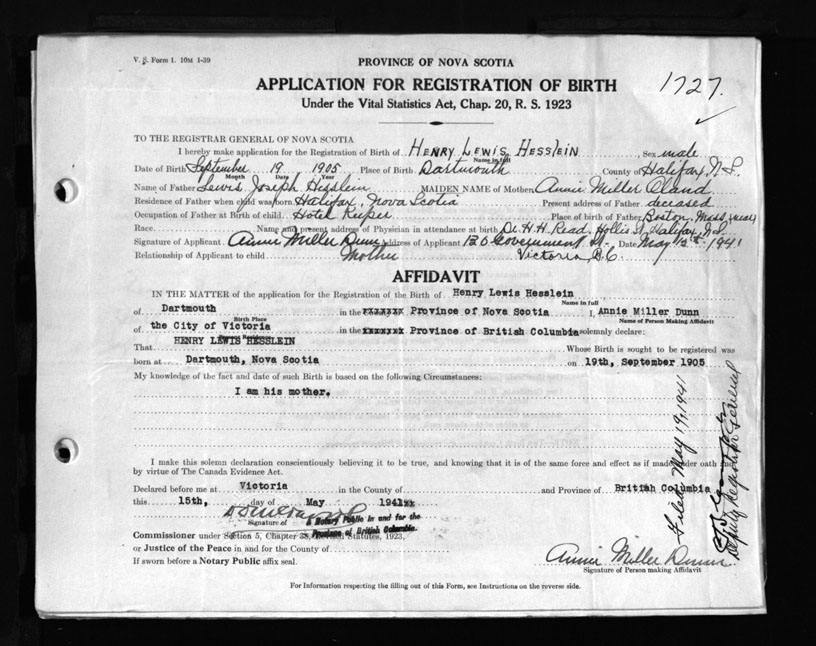 V. S. Form 1. 10M 1-39
PROVINCE OF NOVA SCOTIA
APPLICATION FOR REGISTRATION OF BIRTH
Under the Vital Statistics Act, Chap. 20, R. S. 1923
1727.
TO THE REGISTRAR GENERAL OF NOVA SCOTIA
I hereby make application for the Registration of Birth of HENRY LEWIS HESSLEIN Sex male
Name in full
Date of Birth September 19 1905 Place of Birth Dartmouth County of Halifax, N.S.
Month Date Year
Name of Father Lewis Joseph Hesslein MAIDEN NAME of Mother Annie Miller Oland
Residence of Father when child was born Halifax, Nova Scotia Present address of Father deceased
Occupation of Father at Birth of child Hotel Keeper Place of birth of Father Boston, Mass.
Race Name and present address of Physician in attendance at birth Dr. H. H. Read, Hollis St, Halifax, N.S.
Signature of Applicant Annie Miller Dunn Address of Applicant 120 Government St. Date May 12th 1941
Relationship of Applicant to child Mother Victoria, B.C.
AFFIDAVIT
IN THE MATTER of the application for the Registration of the Birth of Henry Lewis Hesslein
Name in full
of Dartmouth in the xxxxxxx Province of Nova Scotia I, Annie Miller Dunn
Birth Place Name of Person Making Affidavit
of the City of Victoria in the xxxxxxx Province of British Columbia solemnly declare:
That HENRY LEWIS HESSLEIN Whose Birth is sought to be registered was
born at Dartmouth, Nova Scotia on 19th, September 1905
My knowledge of the fact and date of such Birth is based on the following Circumstances:
I am his mother.
I make this solemn declaration conscientiously believing it to be true, and knowing that it is of the same force and effect as if made under oath and
by virtue of The Canada Evidence Act.
Declared before me at Victoria in the County of and Province of British Columbia
this 15th, day of May 1941xx
Signature of A Notary Public in and for the
Province of British Columbia.
Commissioner under Section 5, Chapter 38, Revised Statutes, 1923,
or Justice of the Peace in and for the County of
If sworn before a Notary Public affix seal.
Annie Miller Dunn
Signature of Person making Affidavit
For Information respecting the filling out of this Form, see Instructions on the reverse side.
Filed May 19, 1941
Deputy Registrar General